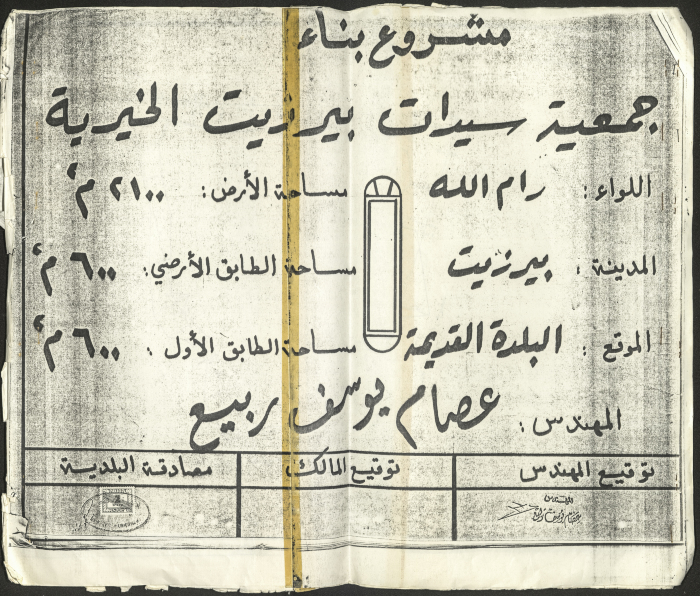 مشروع بناء
جمعية سيدات بيرزيت الخيرية
اللواء: رام الله مساحة الأرض: ٢١٠٠ م٢
المدينة: بيرزيت مساحة الطابق الأرضي: ٦٠٠ م٢
الموقع: البلدة القديمة مساحة الطابق الأول: ٦٠٠ م٢
المهندس: عصام يوسف ربيع
توقيع المهندس توقيع المالك مصادقة البلدية
المهندس